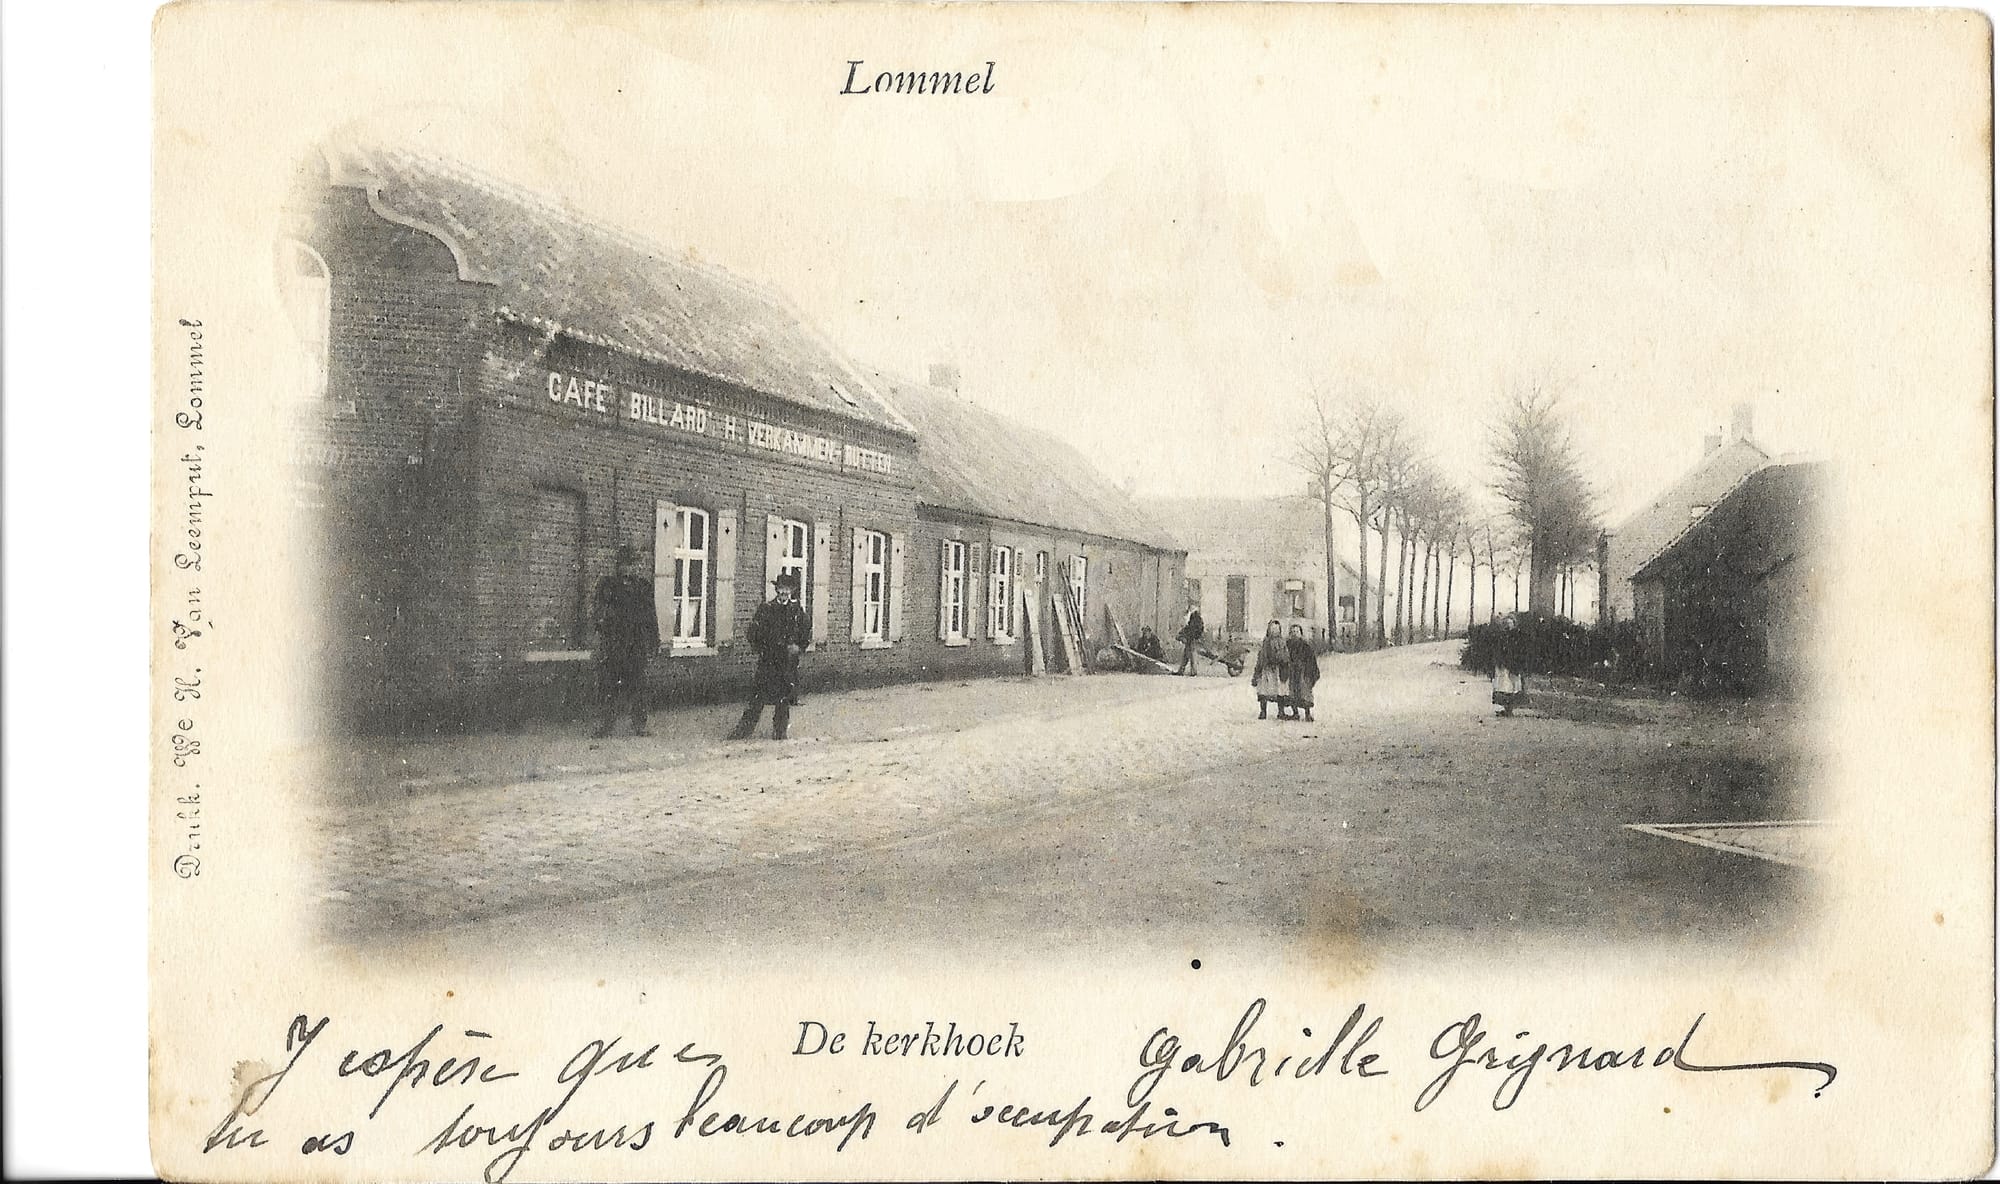 Lommel
CAFÉ BILLARD H. VERKAMMEN-RUTTEN
Drukk. We H. Van Leemput, Lommel
De kerkhoek
J'espère que
tu as toujours beaucoup d'occupation.
Gabrielle Grignard